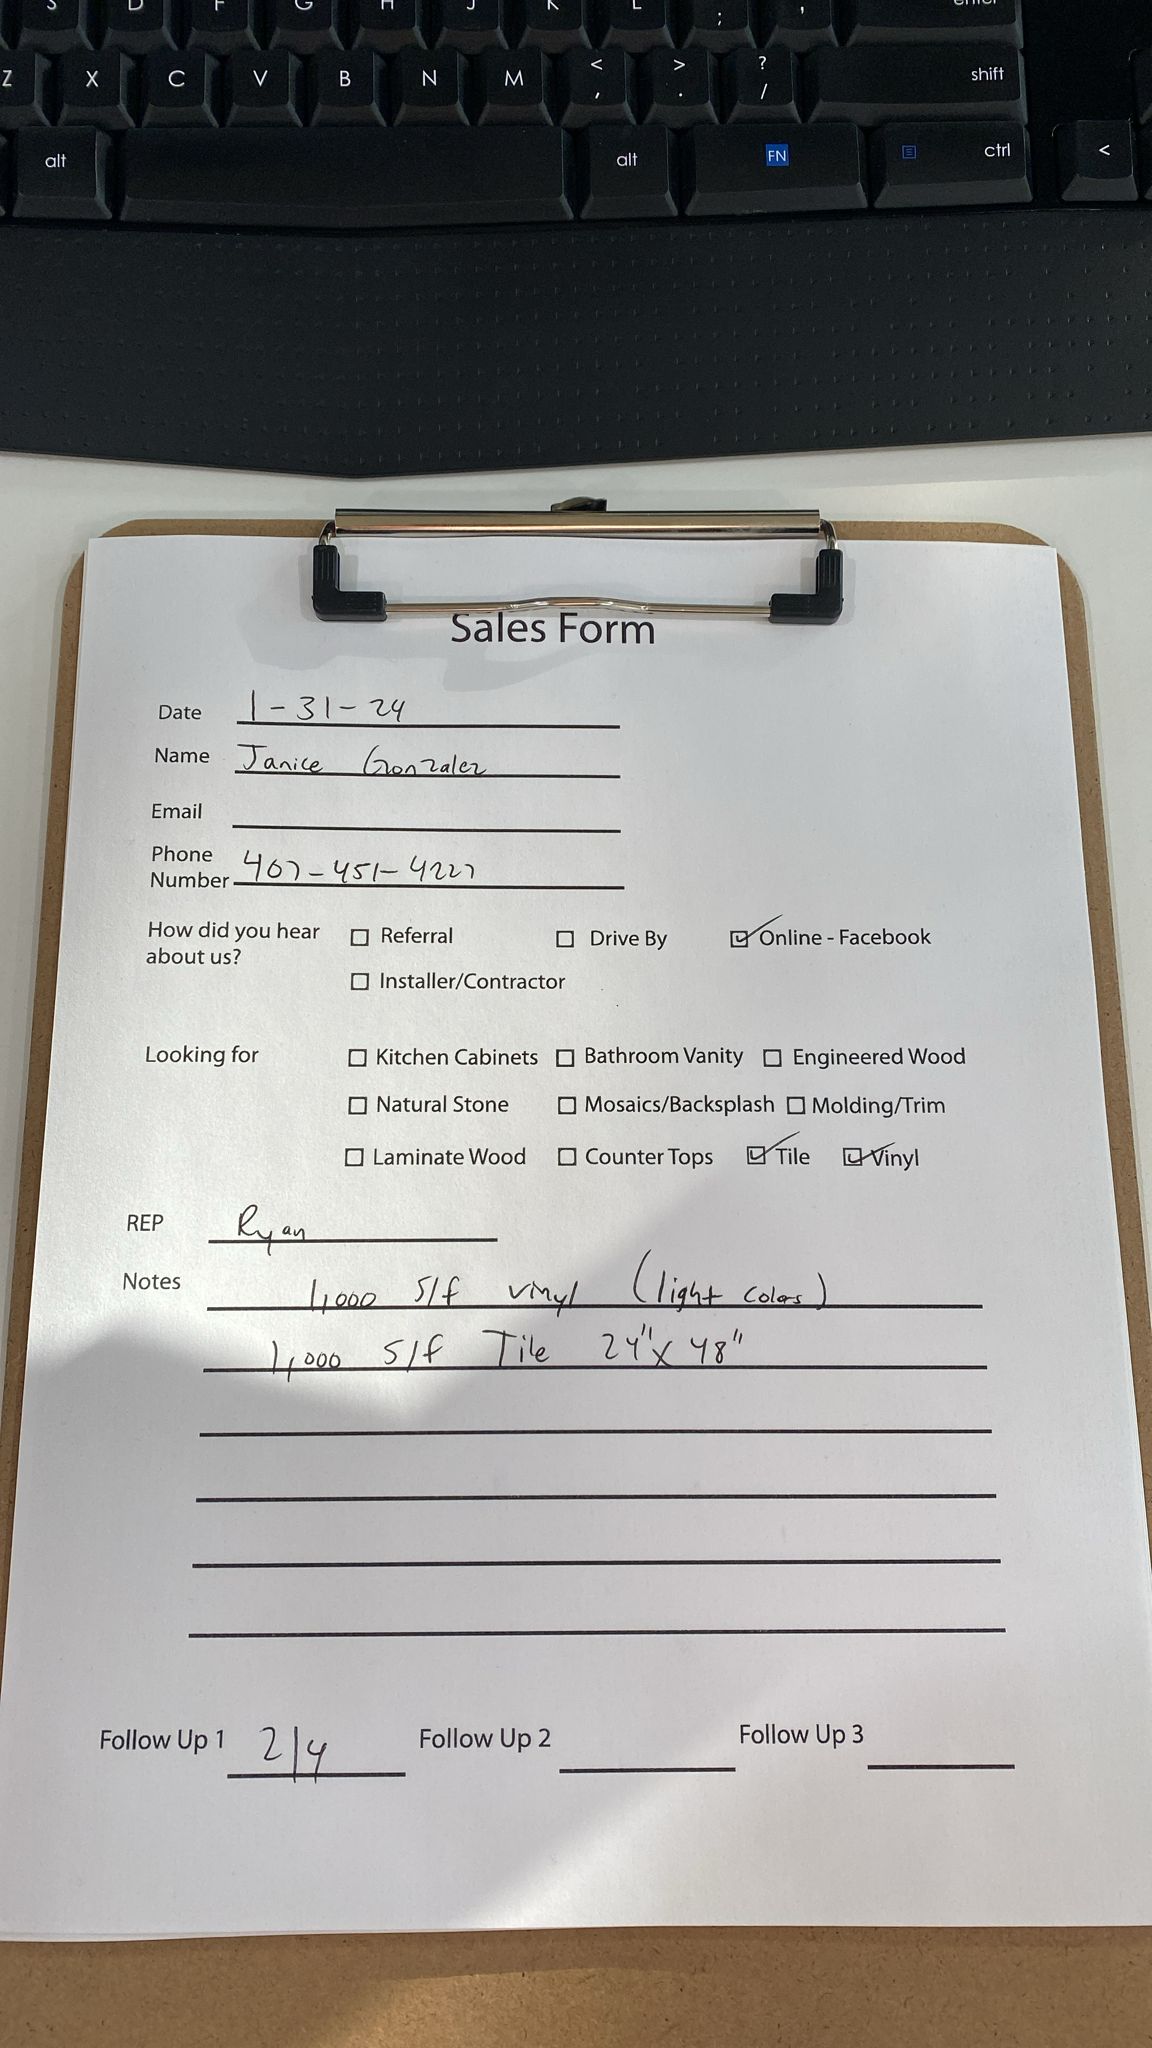 S D F G H J K L ; ' enter
Z X C V B N M < , > . ? / shift
alt alt FN ctrl <
Sales Form
Date 1-31-24
Name Janice Gonzalez
Email
Phone Number 407-451-4227
How did you hear about us? ☐ Referral ☐ Drive By ☑ Online - Facebook
☐ Installer/Contractor
Looking for ☐ Kitchen Cabinets ☐ Bathroom Vanity ☐ Engineered Wood
☐ Natural Stone ☐ Mosaics/Backsplash ☐ Molding/Trim
☐ Laminate Wood ☐ Counter Tops ☑ Tile ☑ Vinyl
REP Ryan
Notes 1,000 s/f vinyl (light colors)
1,000 s/f Tile 24"x 48"
Follow Up 1 2/4 Follow Up 2 Follow Up 3